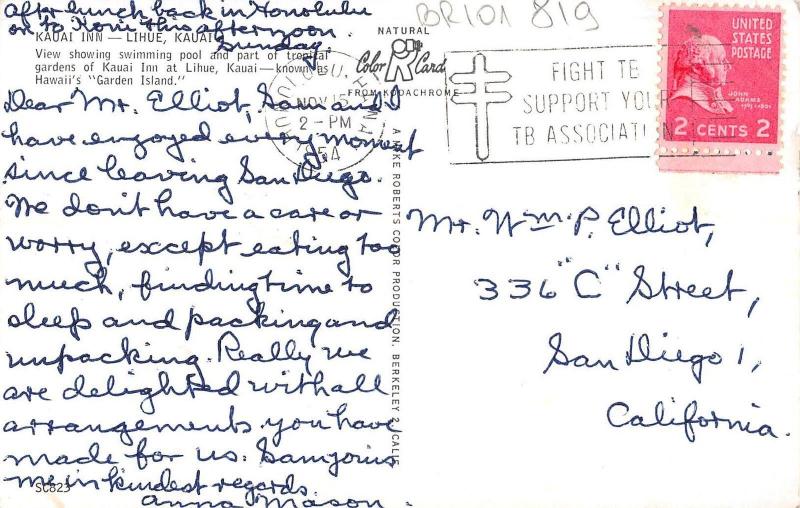 after lunch back in Honolulu
on to Kona this afternoon.
Sunday.
KAUAI INN — LIHUE, KAUAI
View showing swimming pool and part of tropical
gardens of Kauai Inn at Lihue, Kauai—known as
Hawaii's "Garden Island."
Dear Mr. Elliot, Sam and I
have enjoyed every moment
since leaving San Diego.
We don't have a care or
worry, except eating too
much, finding time to
sleep and packing and
unpacking. Really we
are delighted with all
arrangements you have
made for us. Sam joins
me in kindest regards.
Anna Mason.
SC823
NATURAL
Color Card
FROM KODACHROME
A MIKE ROBERTS COLOR PRODUCTION, BERKELEY 2, CALIF.
BR101 819
NOV 15
2 - PM
1954
FIGHT TB
SUPPORT YOUR
TB ASSOCIATION
UNITED
STATES
POSTAGE
JOHN
ADAMS
2 CENTS 2
Mr. Wm. P. Elliot,
336 "C" Street,
San Diego 1,
California.